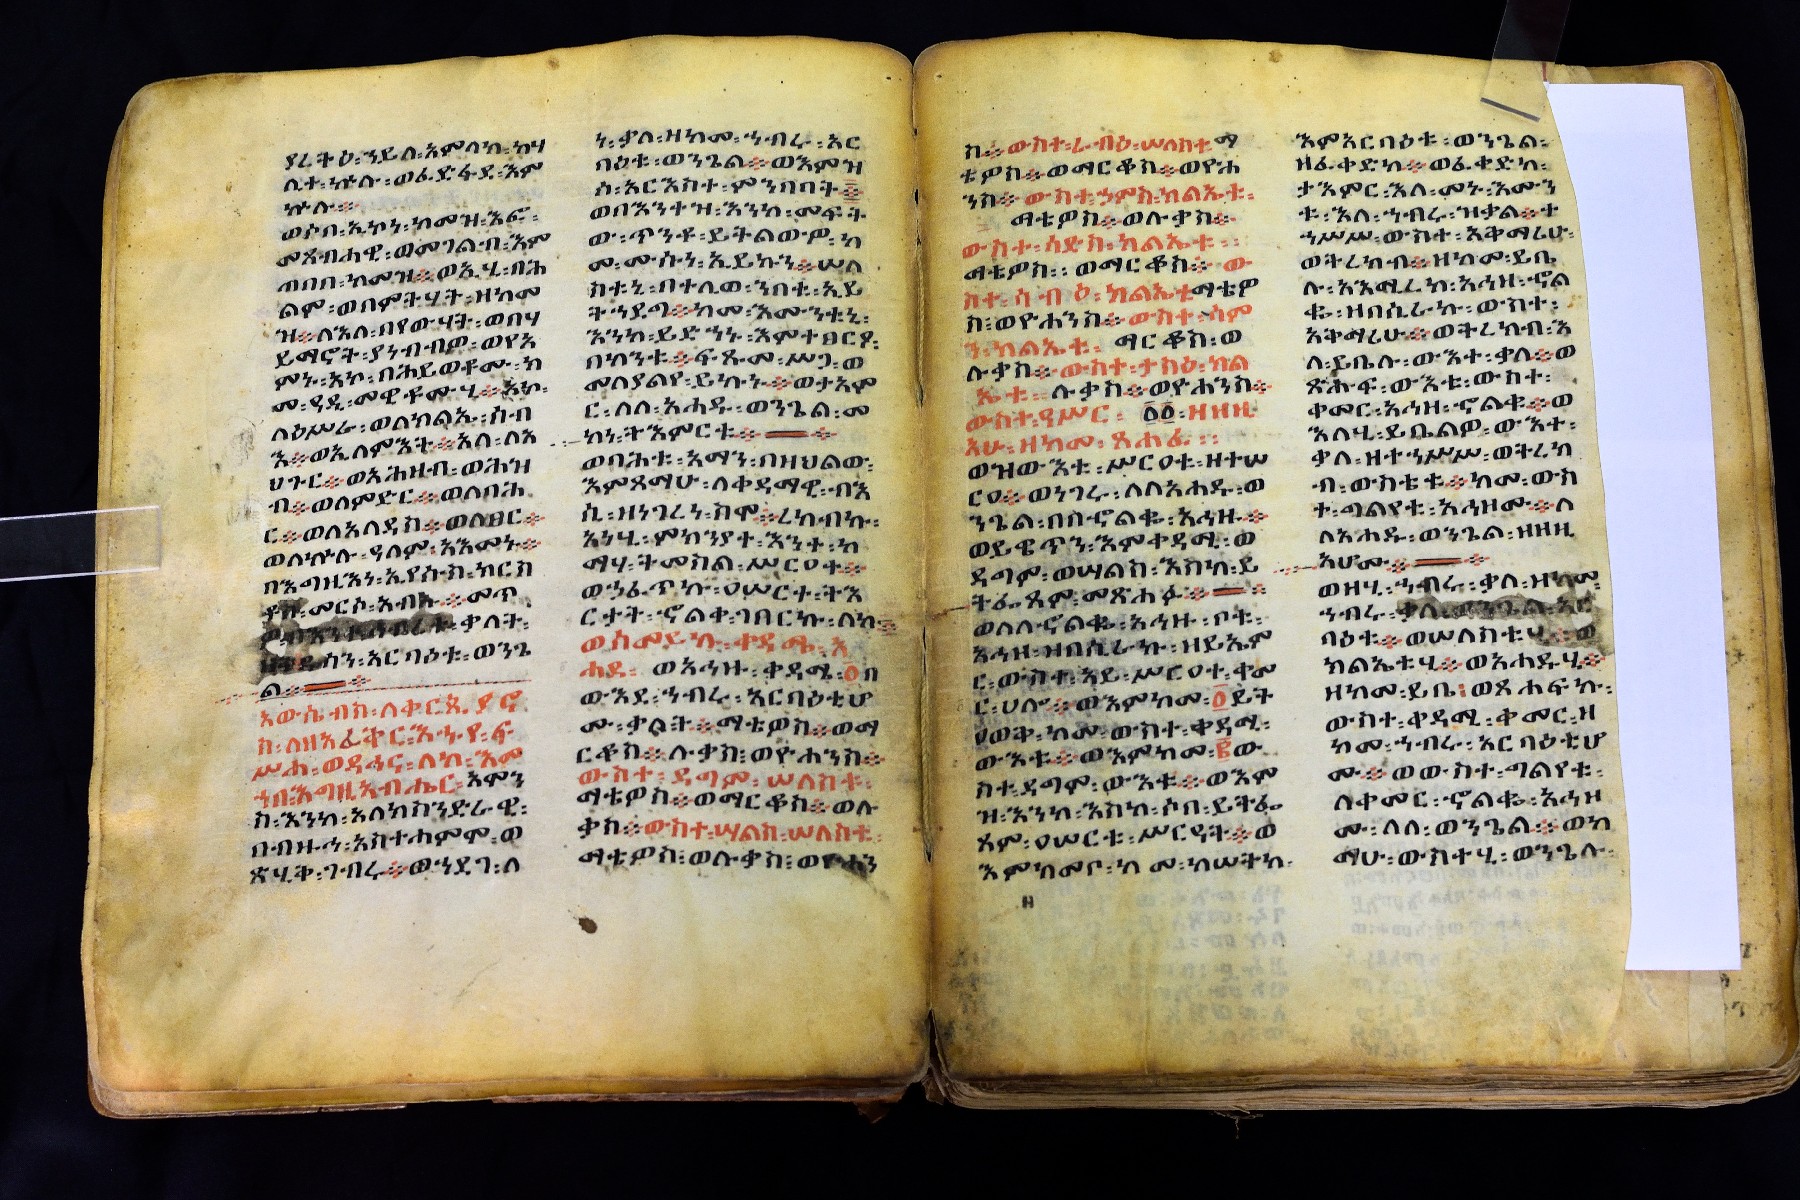 ያረትዕ፡ኀይለ፡አምላክ፡ከሃ
ሊተ፡ኵሉ፡ወፈድፋደ፡እም
ኵሉ፨
ወሶበ፡ኢኮነ፡ከመዝ፡እፎ፡
መጽብሓዊ፡ወመገልብ፡እም
ጠበበ፡ከመዝ፨ወኢሂ፡በሕ
ልም፡ወበምትሃት፡ዘከመ
ዝ፨ለእለ፡በየውሃት፡ወበሃ
ይማኖት፡ያነብብዎ፡ወየአ
ምኑ፡አኮ፡በሕይወቶሙ፡ክ
መ፡ዳዲ፡መዊቶሙ፡ሂ፨አኮ፡
ለዕሥራ፡ወለክልኤ፡ሰብ
እ፨ወኢለምእት፨አለ፡ለአ
ህጉር፨ወአሕዛብ፡ወሕዝ
ብ፨ወለምድር፨ወለባሕ
ር፨ወለአለዳስ፨ወለፀር፨
ወለኵሉ፡ዓለም፡አእመነ፨
በእግዚእነ፡ኢየሱስ፡ክርስ
ቃለት፡
ስን፡አርባዕቱ፡ወንጌ
ል፨
አውሴብስ፡ለቀርጲያኖ
ስ፡ለዘአፈቅር፡እኁየ፡ፍ
ሥሐ፡ወዳኅና፡ለከ፡እም
ኀበ፡እግዚአብሔር፡አሞን
ስ፡እንከ፡እለክስንድራዊ፡
በብዙኅ፡አስተሐምሞ፡ወ
ጽሂቅ፡ገብረ፨ወኀደገ፡ለ
ነ፡ቃለ፡ዘከመ፡ኀብሩ፡አር
ባዕቱ፡ወንጌል፨ወእምዝ
ሰ፡አርእስተ፡ምንባባት፨
ወበእንተዝ፡እንከ፡መፍት
ው፡ጥንቶ፡ይትልወዎ፡ከ
መ፡ሙሱነ፡ኢይኩን፨ሠለ
ስቱኒ፡በተሊወ፡ንበቱ፡ኢይ
ትኀደግ፨ከመ፡እሙንቱኒ፡
እንከ፡ይድኀኑ፡እምተፀርፆ፡
በከንቱ፨ፍጹመ፡ሥጋ፡ወ
መለያልየ፡ይኩኑ፨ወታእም
ር፡ለለ፡አሐዱ፡ወንጌል፡መ
ከነ፡ትእምርቱ፨
ወበሕቱ፡አማን፡በዘህልው፡
እምጻማሁ፡ለቀዳማዊ፡ብእ
ሲ፡ዘነገረነ፡ስሞ፨ረከብኩ፡
አነሂ፡ምክንያተ፡እንተ፡ከ
ማሃ፡ትመስል፡ሥርዐተ፨
ወኃፊጥኩ፡ዐሠርተ፡ትእ
ርታተ፡ኖልቀ፡ገበርኩ፡ለከ፨
ወሰመይኩ፡ቀዳሜ፡አ
ሐደ፡ ወአኀዙ፡ቀዳሜ፡፩በ
ውእደ፡ኀብሩ፡አርባዕቲሆ
ሙ፡ቃላት፡ማቴዎስ፨ወማ
ርቆስ፨ሉቃስ፡ወዮሐንስ፨
ውስተ፡ዳግም፡ሠለስተ፡
ማቴዎስ፨ወማርቆስ፨ወሉ
ቃስ፨ውስተ፡ሣልስ፡ሠለስቱ፡
ማቴዎስ፡ወሉቃስ፡ወዮሐን
ስ፨ውስተ፡ራብዕ፡ሠለስተ፡ማ
ቴዎስ፨ወማርቆስ፨ወዮሐ
ንስ፨ውስተ፡ኃምስ፡ክልኤቱ፡
ማቴዎስ፨ወሉቃስ፨
ውስተ፡ሳድስ፡ክልኤቱ፡
ማቴዎስ፡ወማርቆስ፨ው
ስተ፡ሳብዕ፡ክልኤቱማቴዎ
ስ፡ወዮሐንስ፨ውስተ፡ሳም
ን፡ክልኤቱ፡ማርቆስ፡ወ
ሉቃስ፨ውስተ፡ታስዕ፡ክል
ኤቱ፡ሉቃስ፨ወዮሐንስ፨
ውስተ፡ዓሥር፡ ፩፩፡ዘዘዚ
አሁ፡ዘከመ፡ጸሐፊ፡
ወዝውእቱ፡ሥርዐቱ፡ዘተሠ
ርዐ፨ወነገረ፡ለለአሐዱ፡ወ
ንጌል፡በበኖልቈ፡አኀዙ፨
ወይዌጥን፡እምቀዳሚ፡ወ
ዳግም፡ወሣልስ፡እስከ፡ይ
ትፌጸም፡መጽሐፉ፨
ወለለኖልቈ፡አኀዙ፡ቦቱ፡
አኀዘ፡ዘበሲራኩ፡ዘይኤም
ር፡ውስተ፡አይ፡ሥርዐተ፡ቀመ
ር፡ሀሎ፨ወእምከመ፡፩ይት
ዐወቅ፡ከመ፡ውስተ፡ቀዳሚ፡
ውእቱ፨ወእምከመ፡፪ው
ስተ፡ዳግም፡ውእቱ፨ወእም
ዝ፡እንከ፡እስከ፡ሶበ፡ይትፌ
ጸም፡ዐሠርቱ፡ሥርዓት፨ወ
እምከመቦ፡ከመ፡ከሠትከ፡
ዘ
እምአርባዕቱ፡ወንጌል፡
ዘፈቀድከ፨ወፈቀድከ፡
ታእምር፡እለ፡መኑ፡እሙን
ቱ፡እለ፡ኀብሩ፡ዝቃል፨ት
ኀሥሥ፡ውስተ፡አቅማሪሁ፡
ወትረክብ፨ዘከመ፡ይቤ
ሉ፡አእሚረከ፡አኀዘ፡ኖል
ቈ፡ዘበሲራኩ፡ውስተ፡
አቅማሪሁ፨ወትረክብ፡እ
ለ፡ይቤሉ፡ውእተ፡ቃለ፨ወ
ጽሑፍ፡ውእቱ፡ውስተ፡
ቀመር፡አኀዘ፡ኖልቈ፨ወ
እለሂ፡ይቤልዎ፡ውእተ፡
ቃለ፡ዘተኀሥሥ፡ወትረክ
ብ፡ውስቴቱ፨ከመ፡ውስ
ተ፡ግልየቱ፡አኀዘሙ፨ለ
ለአሐዱ፡ወንጌል፡ዘዘዚ
አሆሙ፨
ወዘሂ፡ኀብሩ፡ቃለ፡ዘከመ፡
ኀብሩ፡ቃለ፡ወንጌል፡አር
ባዕቱ፨ወሠለስቱሂ፨ወ
ክልኤቱሂ፨ወአሐዱሂ፨
ዘከመ፡ይቤ፡ወጸሐፍኩ፡
ውስተ፡ቀዳሚ፡ቀመር፡ዘ
ከመ፡ኀብሩ፡አርባዕቲሆ
ሙ፨ወውስተ፡ግልየቱ፡
ለቀመር፡ኖልቈ፡አኀዘ
ሙ፡ለለ፡ወንጌል፨ወከ
ማሁ፡ውስተሂ፡ወንጌሉ፡